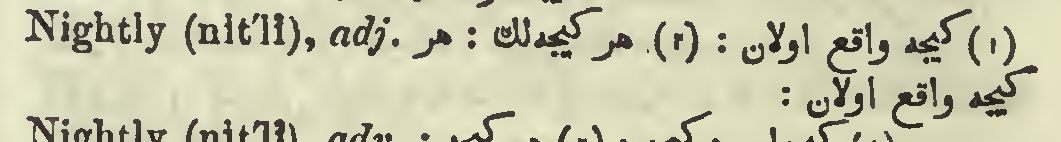 Nightly (nīt'lĭ), adj. (١) كیجه واقع اولان : (٢) هر كیجه‌لك : هر
كیجه واقع اولان :
Nightly (nīt'lĭ), adv.